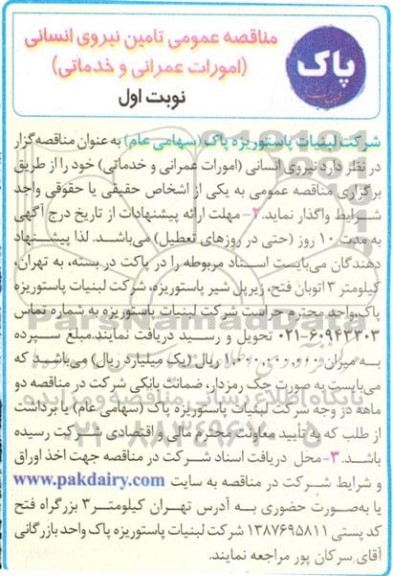 مناقصه عمومی تامین نیروی انسانی
(امورات عمرانی و خدماتی)
نوبت اول
پاک
شرکت لبنیات پاستوریزه پاک (سهامی عام) به عنوان مناقصه گزار
در نظر دارد نیروی انسانی (امورات عمرانی و خدماتی) خود را از طریق
برگزاری مناقصه عمومی به یکی از اشخاص حقیقی یا حقوقی واجد
شرایط واگذار نماید. ۲- مهلت ارائه پیشنهادات از تاریخ درج آگهی
به مدت ۱۰ روز (حتی در روزهای تعطیل) می‌باشد. لذا پیشنهاد
دهندگان می‌بایست اسناد مربوطه را در پاکت در بسته، به تهران،
کیلومتر ۳ اتوبان فتح، زیر پل شیر پاستوریزه، شرکت لبنیات پاستوریزه
پاک، واحد محترم حراست شرکت لبنیات پاستوریزه به شماره تماس
۰۲۱-۶۰۹۴۳۳۰۳ تحویل و رسید دریافت نمایند. مبلغ سپرده
به میزان ۱،۰۰۰،۰۰۰،۰۰۰ ریال (یک میلیارد ریال) می‌باشد که
می‌بایست به صورت چک رمزدار، ضمانت بانکی شرکت در مناقصه دو
ماهه در وجه شرکت لبنیات پاستوریزه پاک (سهامی عام) یا برداشت
از طلب که به تأیید معاونت محترم مالی و اقتصادی شرکت رسیده
باشد. ۳- محل دریافت اسناد شرکت در مناقصه جهت اخذ اوراق
و شرایط شرکت در مناقصه به سایت www.pakdairy.com
یا به‌صورت حضوری به آدرس تهران کیلومتر ۳ بزرگراه فتح
کد پستی ۱۳۸۷۶۹۵۸۱۱ شرکت لبنیات پاستوریزه پاک واحد بازرگانی
آقای سرکان پور مراجعه نمایند.
ParsNamadData
پایگاه اطلاع رسانی مناقصه و مزایده
۰۲۱-۸۸۳۴۹۶۷۰-۵